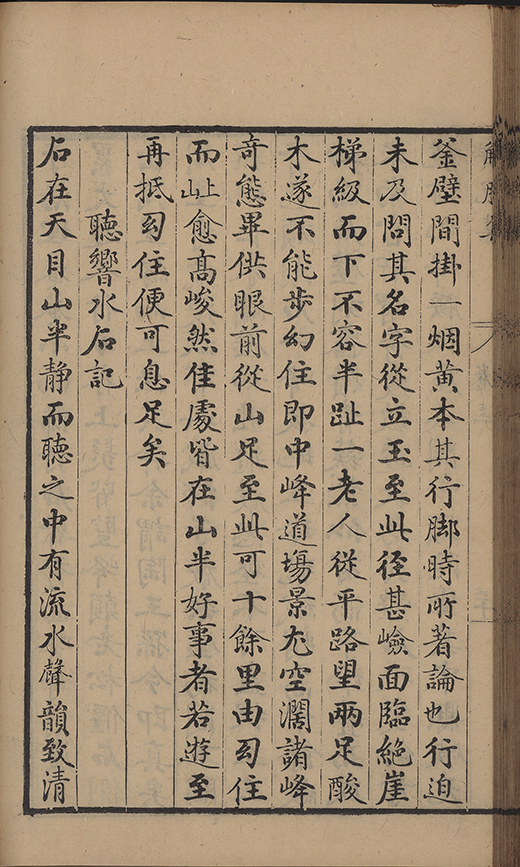 釜壁間掛一烟黄本其行脚時所著論也行迫
未及問其名字從立玉至此徑甚嶮面臨絶崖
梯級而下不容半趾一老人從平路望兩足酸
木遂不能步幻住即中峰道塲景尤空濶諸峰
奇態畢供眼前從山足至此可十餘里由幻住
而上山愈高峻然佳處皆在山半好事者若遊至
再抵幻住便可息足矣
聽響水石記
石在天目山半靜而聽之中有流水聲韻致清